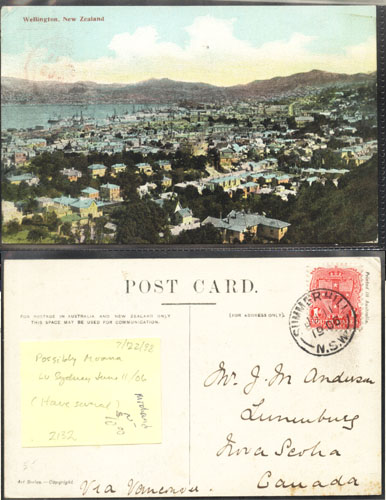 Wellington, New Zealand
POST CARD.
FOR POSTAGE IN AUSTRALIA AND NEW ZEALAND ONLY
THIS SPACE MAY BE USED FOR COMMUNICATION.
(FOR ADDRESS ONLY.)
Printed in Australia.
SUMMER HILL
N.S.W.
7/22/92
Possibly Moana
Lv Sydney June 11/06
(Have several)
2132
Mr. J. M. Anderson
Lunenburg
Nova Scotia
Canada
Art Series - Copyright.
Via Vancouver